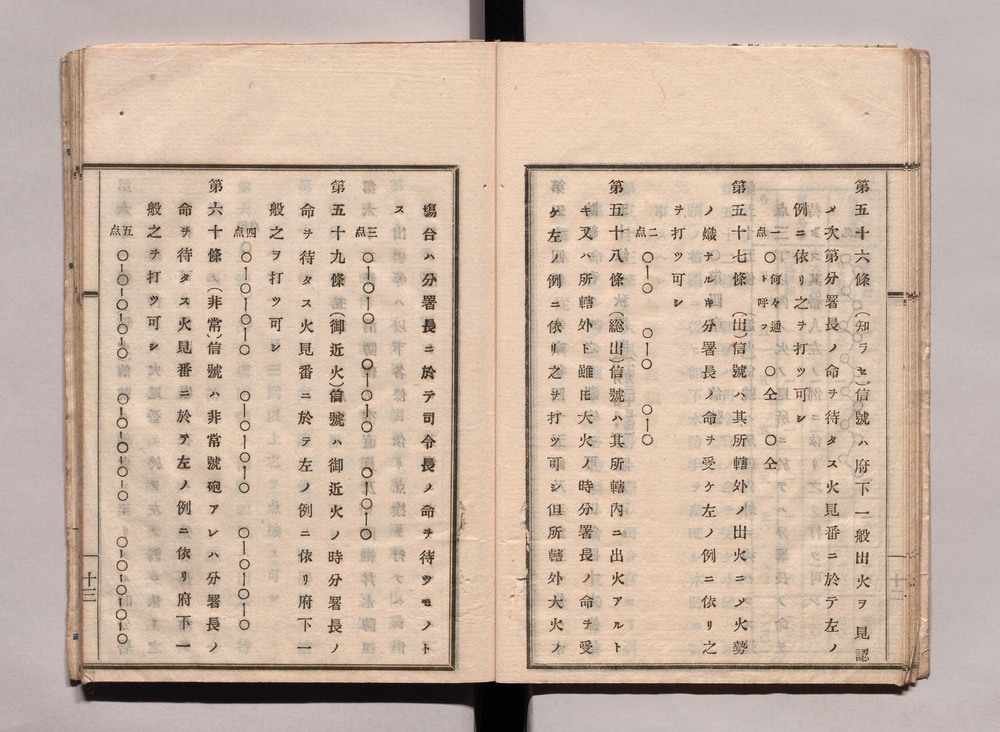 第五十六條 (知ラセ)信號ハ府下一般出火ヲ見認
メ次第分署長ノ命ヲ待タス火見番ニ於テ左ノ
例ニ依リ之ヲ打ツ可シ
一点 〇何々通ト呼フ 〇仝 〇仝
第五十七條 (出)信號ハ其所轄外ノ出火ニメ火勢
ノ熾ナルトキ分署長ノ命ヲ受ケ左ノ例ニ依リ之
ヲ打ツ可シ
二点 〇ー〇 〇ー〇 〇ー〇
第五十八條 (総出)信號ハ其所轄內ニ出火アルト
キ又ハ所轄外ト雖㆑大火ノ時分署長ノ命ヲ受
ケ左ノ例ニ依リ之ヲ打ツ可シ但所轄外大火ノ
塲台ハ分署長ニ於テ司令長ノ命ヲ待ツモノト
ス
三点 〇ー〇ー〇 〇ー〇ー〇 〇ー〇ー〇
第五十九條 (御近火)信號ハ御近火ノ時分署長ノ
命ヲ待タス火見番ニ於テ左ノ例ニ依リ府下一
般之ヲ打ツ可シ
四点 〇ー〇ー〇ー〇 〇ー〇ー〇ー〇 〇ー〇ー〇ー〇
第六十條 (非常)信號ハ非常號砲アレハ分署長ノ
命ヲ待タス火見番ニ於テ左ノ例ニ依リ府下一
般之ヲ打ツ可シ
五点 〇ー〇ー〇ー〇ー〇 〇ー〇ー〇ー〇ー〇 〇ー〇ー〇ー〇ー〇
十三